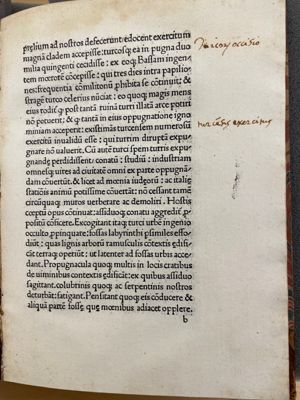 prælium ad nostros defecerunt: edocent exercitum
magnā cladem accepisse: turcosq; ea in pugna duo
milia quingenti cecidisse: ex eoq; Bassam ingen-
tem morore cōcepisse; qui tres dies intra papilio-
nes: frequentia comilitonū phibita se cōtinuit: &
stragē turco celerius nūciat: eo quoq; magis mens
eius robst q post tantā ruinā turri illatā arce potiri
nō potuerit: & q tanta in eius oppugnatione igno
miniam acceperit: existimās turcensem numerosū
exercitū inualidū esse: qui turrim dirruptā expu-
gnare nō ualuerit. Cū autē turci spem turris expu
gnandę perdidissent: conatū: studiū: industriam
omnesq; uires ad ciuitatē omni ex parte oppugnā
dam cōuertūt: & licet ad moenia iudęorū: ac italię
statiōis animū potissime cōuertāt: nō cessant tamē
circūquaq; muros uerberare ac demoliri. Hostis
cœptū opus cōtinuat: assiduoq; conatu aggredit, p
positū cōficere. Excogitant itaq; turci urbē ingenio
occulto, ppinquare: fossas labyrinthi psimiles effo-
diūt; quas lignis arborū ramusculis cōtextis edifi-
cant terraq; operiunt: ut latenter ad fossas urbis acce-
dant. Propugnacula quoq; multis in locis cratibus
de uiminibus contextis edificāt: ex quibus assiduo
sagittant. colubrinis quoq; ac serpentinis nostros
deturbāt: fatigant. Pensitant quoq; eis cōducere &
aliquā partē fossę: quę moenibus adiacet opplere.
b
occisio
exercitus